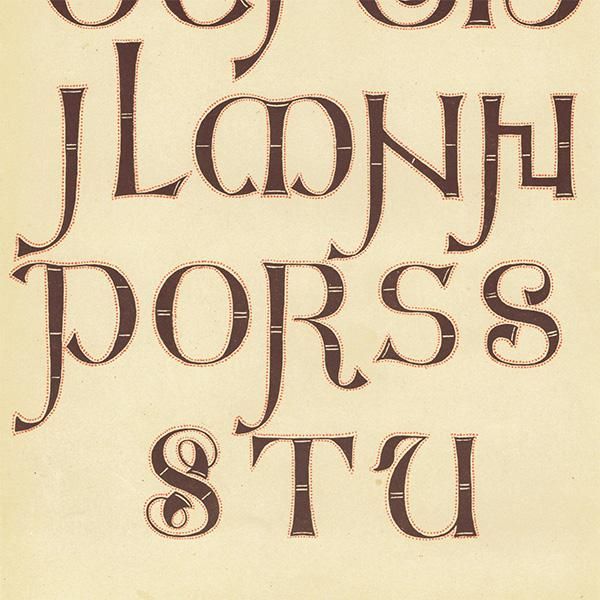 J L M N N
P O R S S
S T U